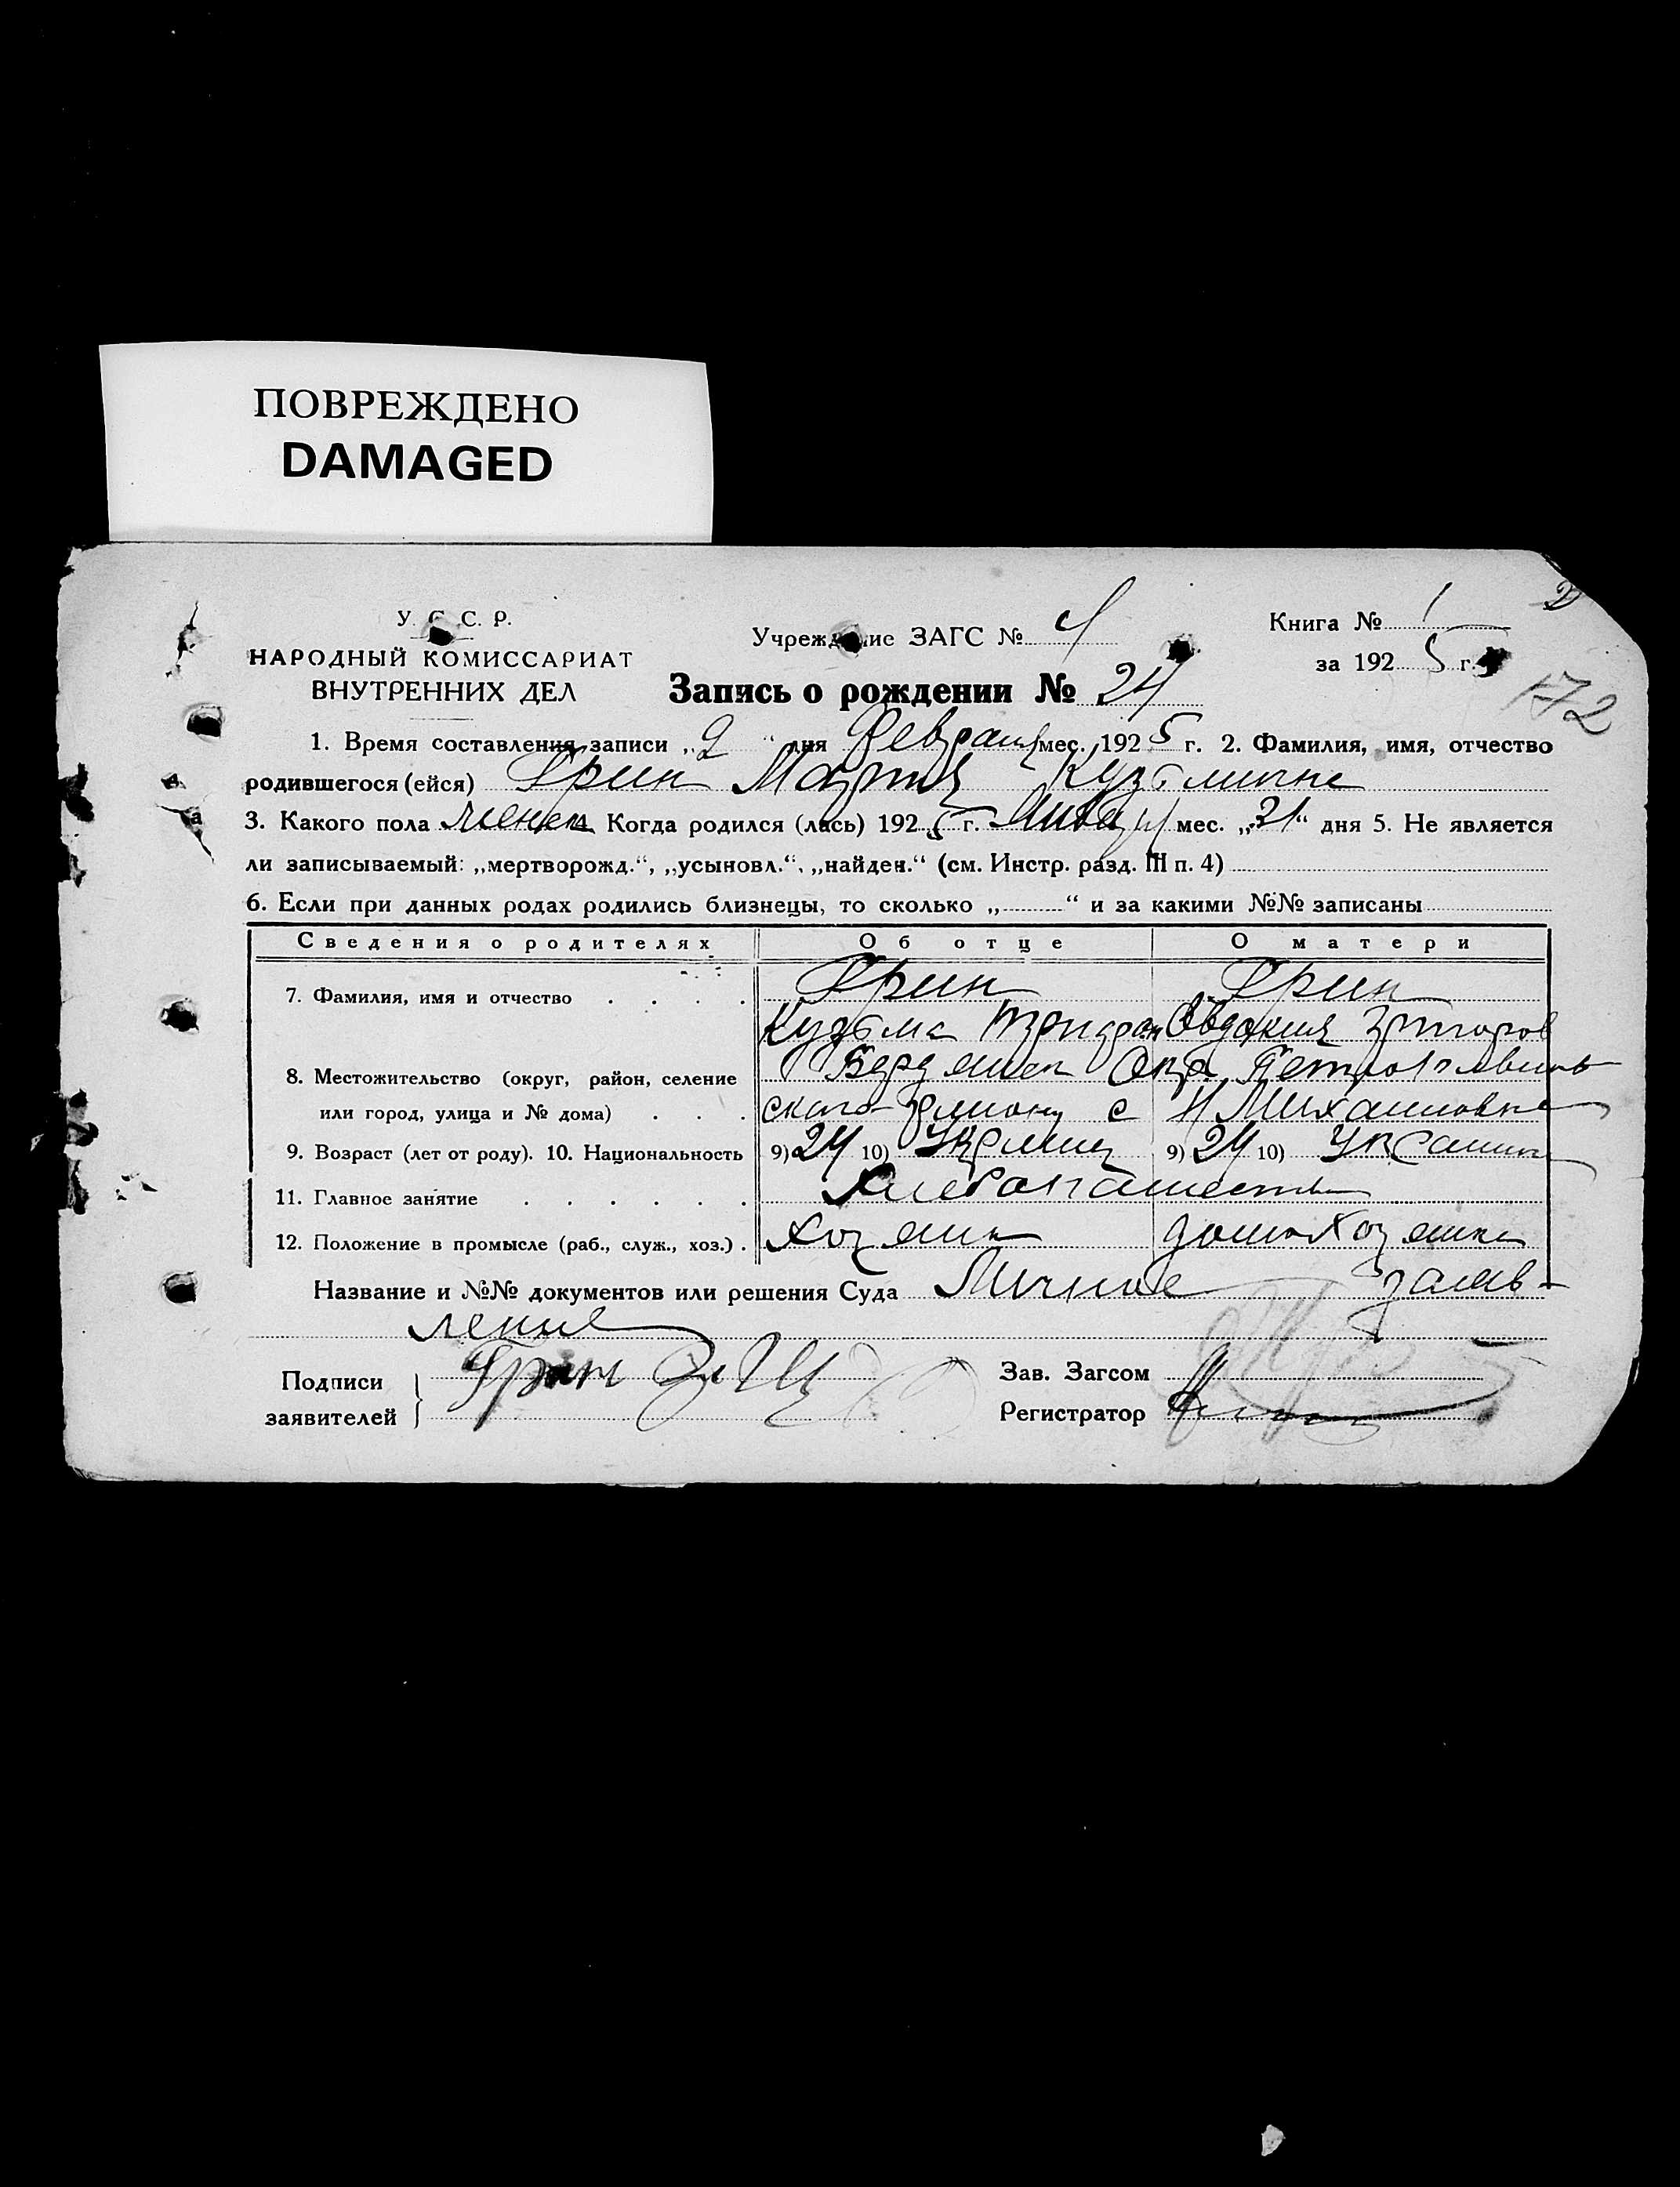 ПОВРЕЖДЕНО
DAMAGED
У. С. С. Р.
НАРОДНЫЙ КОМИССАРИАТ
ВНУТРЕННИХ ДЕЛ
Учреждение ЗАГС № 4
Книга № 1
за 1925 г.
172
Запись о рождении № 24
1. Время составления записи „2“ дня Февраля мес. 1925 г. 2. Фамилия, имя, отчество
родившегося (ейся) Грин Мария Кузьминична
3. Какого пола женск 4. Когда родился (лась) 1925 г. Января мес. „31“ дня 5. Не является
ли записываемый: „мертворожд.“, „усыновл.“, „найден.“ (см. Инстр. разд. III п. 4)
6. Если при данных родах родились близнецы, то сколько „ “ и за какими №№ записаны
Сведения о родителях Об отце О матери
7. Фамилия, имя и отчество Грин Грин
Кузьма Евдокия
8. Местожительство (округ, район, селение
или город, улица и № дома) ского району с Н Михайловка
9. Возраст (лет от роду). 10. Национальность 9) 24 10) 9) 24 10)
11. Главное занятие Хлебопашество
12. Положение в промысле (раб., служ., хоз.). хозяин домохозяйка
Название и №№ документов или решения Суда Личное заяв-
ление
Подписи Грин Зав. Загсом
заявителей Регистратор